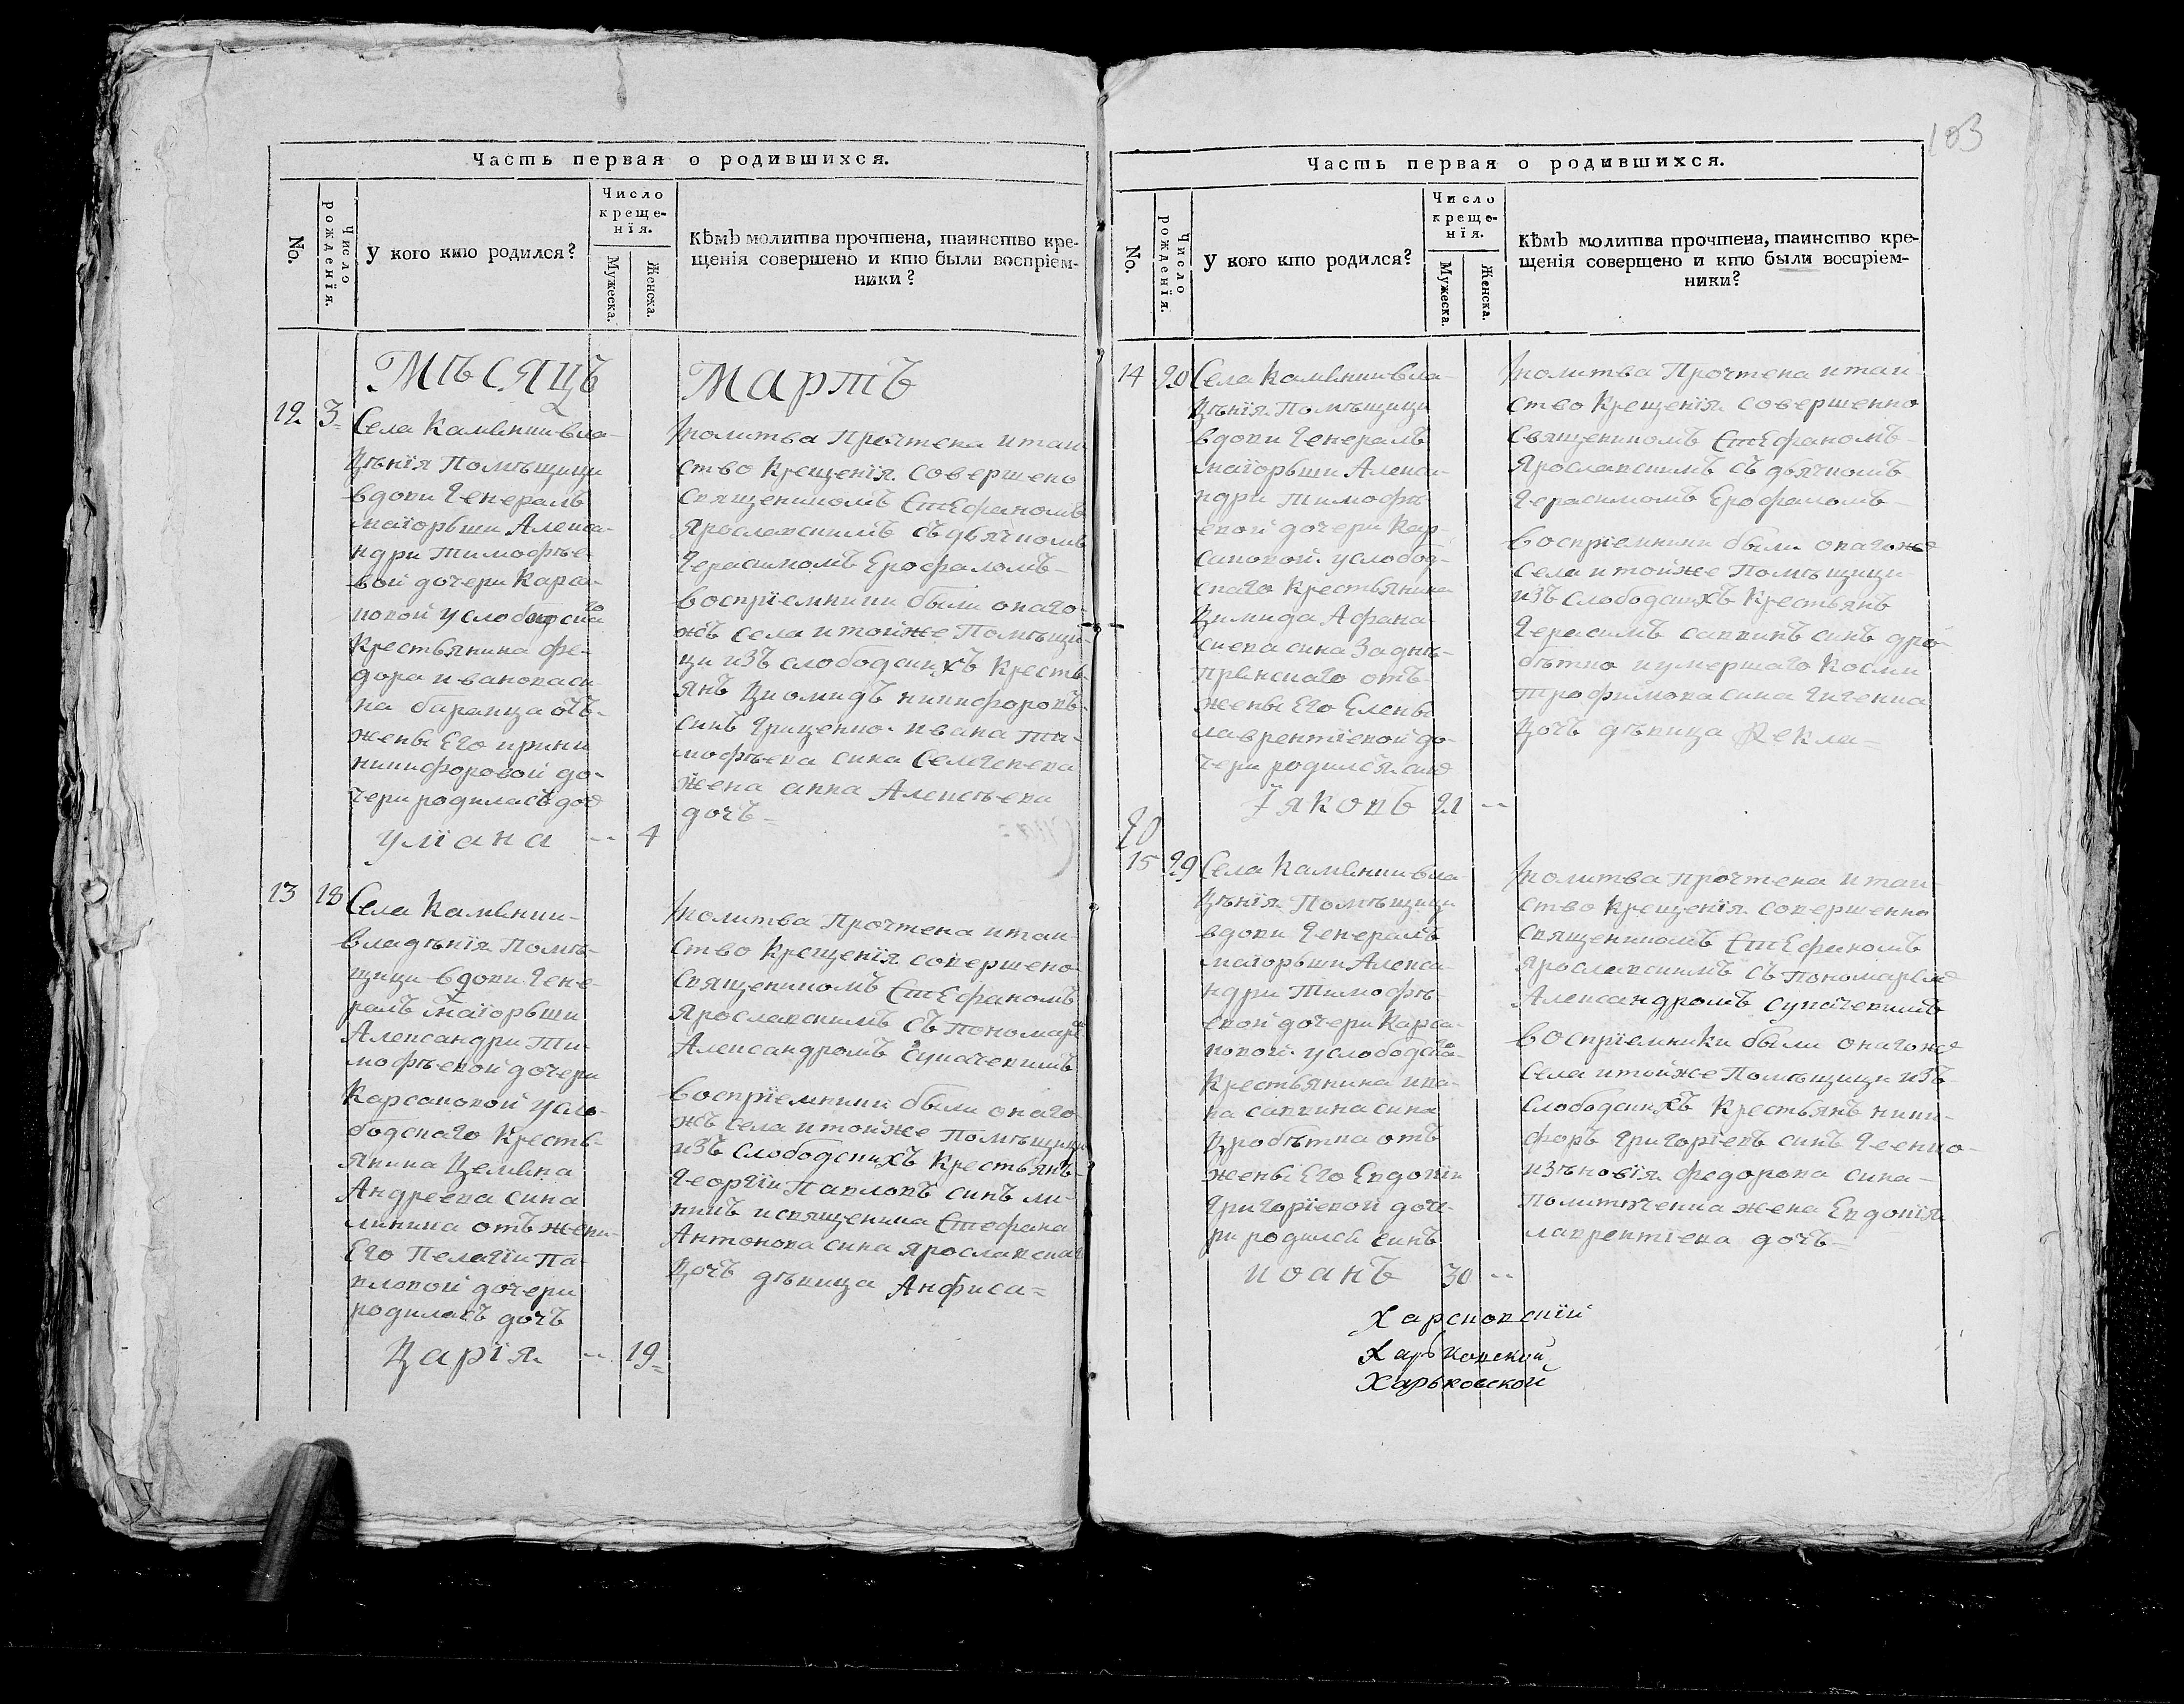 Часть первая о родившихся.
No.
Число рожденїя.
У кого кто родился?
Число
креще-
нїя.
Мужеска.
Женска.
Кѣмъ молитва прочтена, таинство кре-
щенія совершено и кто были воспріем-
ники?
Мѣсяцъ
Мартъ
12
3
Села Каменки вла-
дѣнїя Помѣщици
вдови Генералъ
маїорьши Алекса-
ндри Тимофѣе-
вой дочери Карса-
новой услободскаго
Крестьянина Фе-
дора иванова си
на баранца отъ-
жены Его ирини
никифоровой до-
чери родилась доч
улїана -- 4
молитва Прочтена и таи
ство Крещенїя совершено
священикомъ Стефаномъ
Ярославскимъ съ дьячкомъ
Герасимомъ Ерофаломъ-
воспрїемники были онаго-
жъ села и тойже Помѣщи-
ци изъ слободскихъ Кресть-
янъ Диомидъ никифоровъ-
синъ Гриценко ивана Ти-
мофѣева сина
жена анна Алексѣева
дочъ=
13
18
Села Каменки-
владѣнїя Помѣ-
щици вдови Гене-
ралъ Маїорьши
Александри Ти-
мофѣевой дочери
Карсановой усло-
бодскаго Кресть-
янина
Андреева сина
отъ жени-
Его Пелагїи Па-
вловой дочери
родилась дочъ
Дарїя -- 19=
молитва Прочтена и таи-
ство Крещенїя совершено
Священикомъ Стефаномъ
Ярославскимъ съ Пономаре
Александромъ Сукачевимъ
воспрїемники были онаго-
жъ села и тойже Помѣщици
изъ слободскихъ Крестьянъ-
Георгїи Павловъ синъ ли-
никъ и священика Стефана
Антонова сина Ярославскаг
Дочъ дѣвица Анфиса=
103
Часть первая о родившихся.
No.
Число рожденїя.
У кого кто родился?
Число
креще-
нїя.
Мужеска.
Женска.
Кѣмъ молитва прочтена, таинство кре-
щенія совершено и кто были воспріем-
ники?
14
20
Села Каменки вла-
дѣнїя Помѣщици
вдови Генералъ
маїорьши Алекса-
ндри Тимофѣ-
евой дочери Кар-
сановой услобод-
скаго Крестьянина
Димида Афана
сиева сина Заднѣ-
пренскаго отъ-
жены Его Елены
лаврентїевой до-
чери родился син
Їяковъ 21 --
молитва Прочтена и таи
ство Крещенїя совершенно
Священикомъ Стефаномъ-
Ярославскимъ съ дьячкомъ
Герасимомъ Ерофаломъ-
воспрїемники были онагоже
Села и тойже Помѣщици
изъ слободскихъ Крестьянъ
Герасимъ саввинъ синъ дро-
бѣтко и умершаго Косми
Трофимова сина
Дочъ дѣвица Фекла=
20
15
29
Села Каменки вла-
дѣнїя Помѣщици
вдови Генералъ
маїорьши Алекса-
ндри Тимофѣ-
евой дочери Карса-
новой услободска-
Крестьянина ива-
на саввина сина
Дробѣтка отъ
жены Его Евдокїи
Григорїевой доче
ри родился синъ
иоанъ 30 --
молитва прочтена и таи
ство крещенїя совершенно
священикомъ Стефаномъ
Ярославскимъ съ Пономарем
Александромъ Сукачевимъ
воспрїемники были онагоже
Села и тойже Помѣщици изъ
Слободскихъ Крестьянъ ники-
форъ Григорїевъ синъ Геенко-
и зѣновїя федорова сина-
жена Евдокїя
лаврентїева дочъ=
Харковскїй
Харьковской
Харьковской